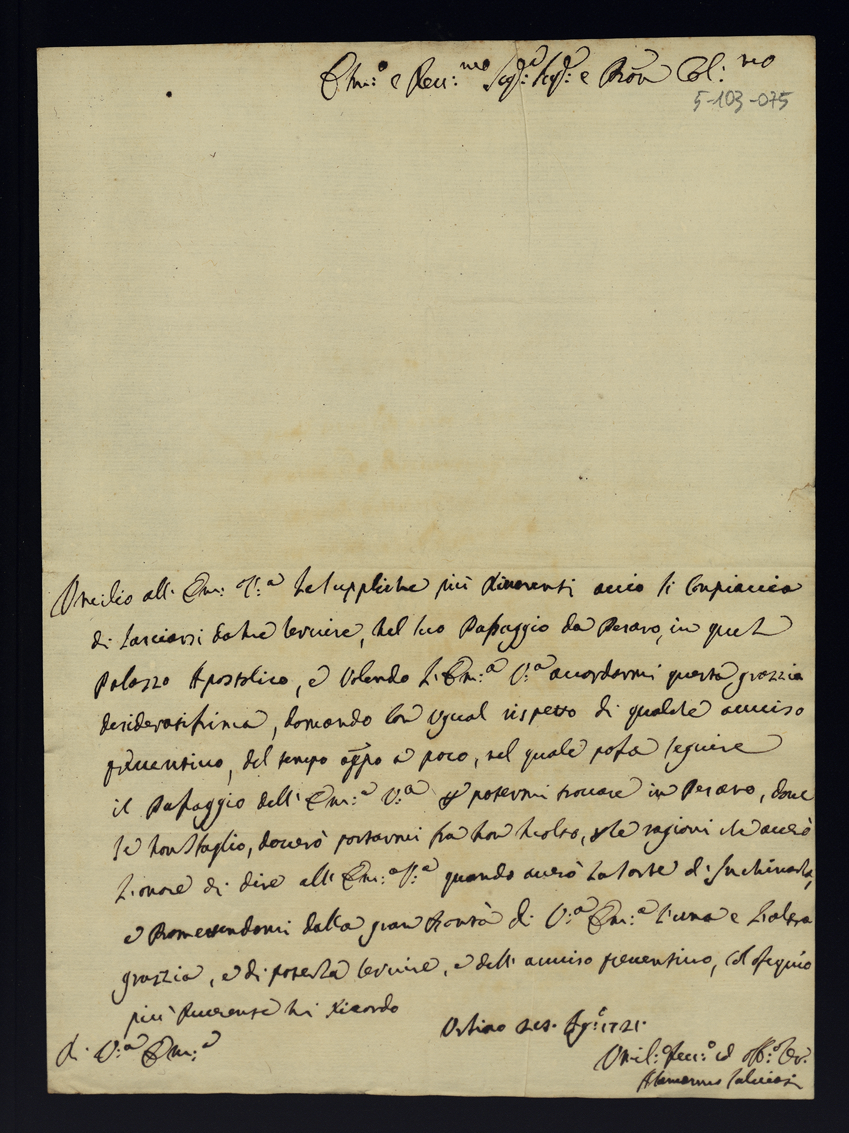 Em:o e Reu:mo Sig:r Sig:r e Pron Col:mo
5-103-075
Umilio all' Em: V:a le suppliche più riuerenti acciò si Compiaccia
di lasciarsi da me seruire, nel suo Passaggio da Pesaro, in quel
Palazzo Apostolico, e Volendo l'Em:a V:a accordarmi questa grazzia
desideratissima, domando Con ugual rispetto di qualche auuiso
preuentiuo, del tempo app̄o a poco, nel quale possa seguire
il Passaggio dell' Em:a V:a p potermi trouare in Pesaro, doue
se non sbaglio, douerò portarmi fra non molto, p le ragioni che auerò
l'onore di dire all' Em:a V:a quando auerò la sorte d'Inchinarla,
e Promettendomi dalla gran Bontà di V:a Em:a l'una e l'altra
grazzia, e di poterla seruire, e dell' auuiso preuentiuo, Col ossequio
più Riuerente mi ricordo
Di V:a Em:a
Urbino 1721.
Umil: Deu:o ed obb:o Ser.
Alamanno Saluiati